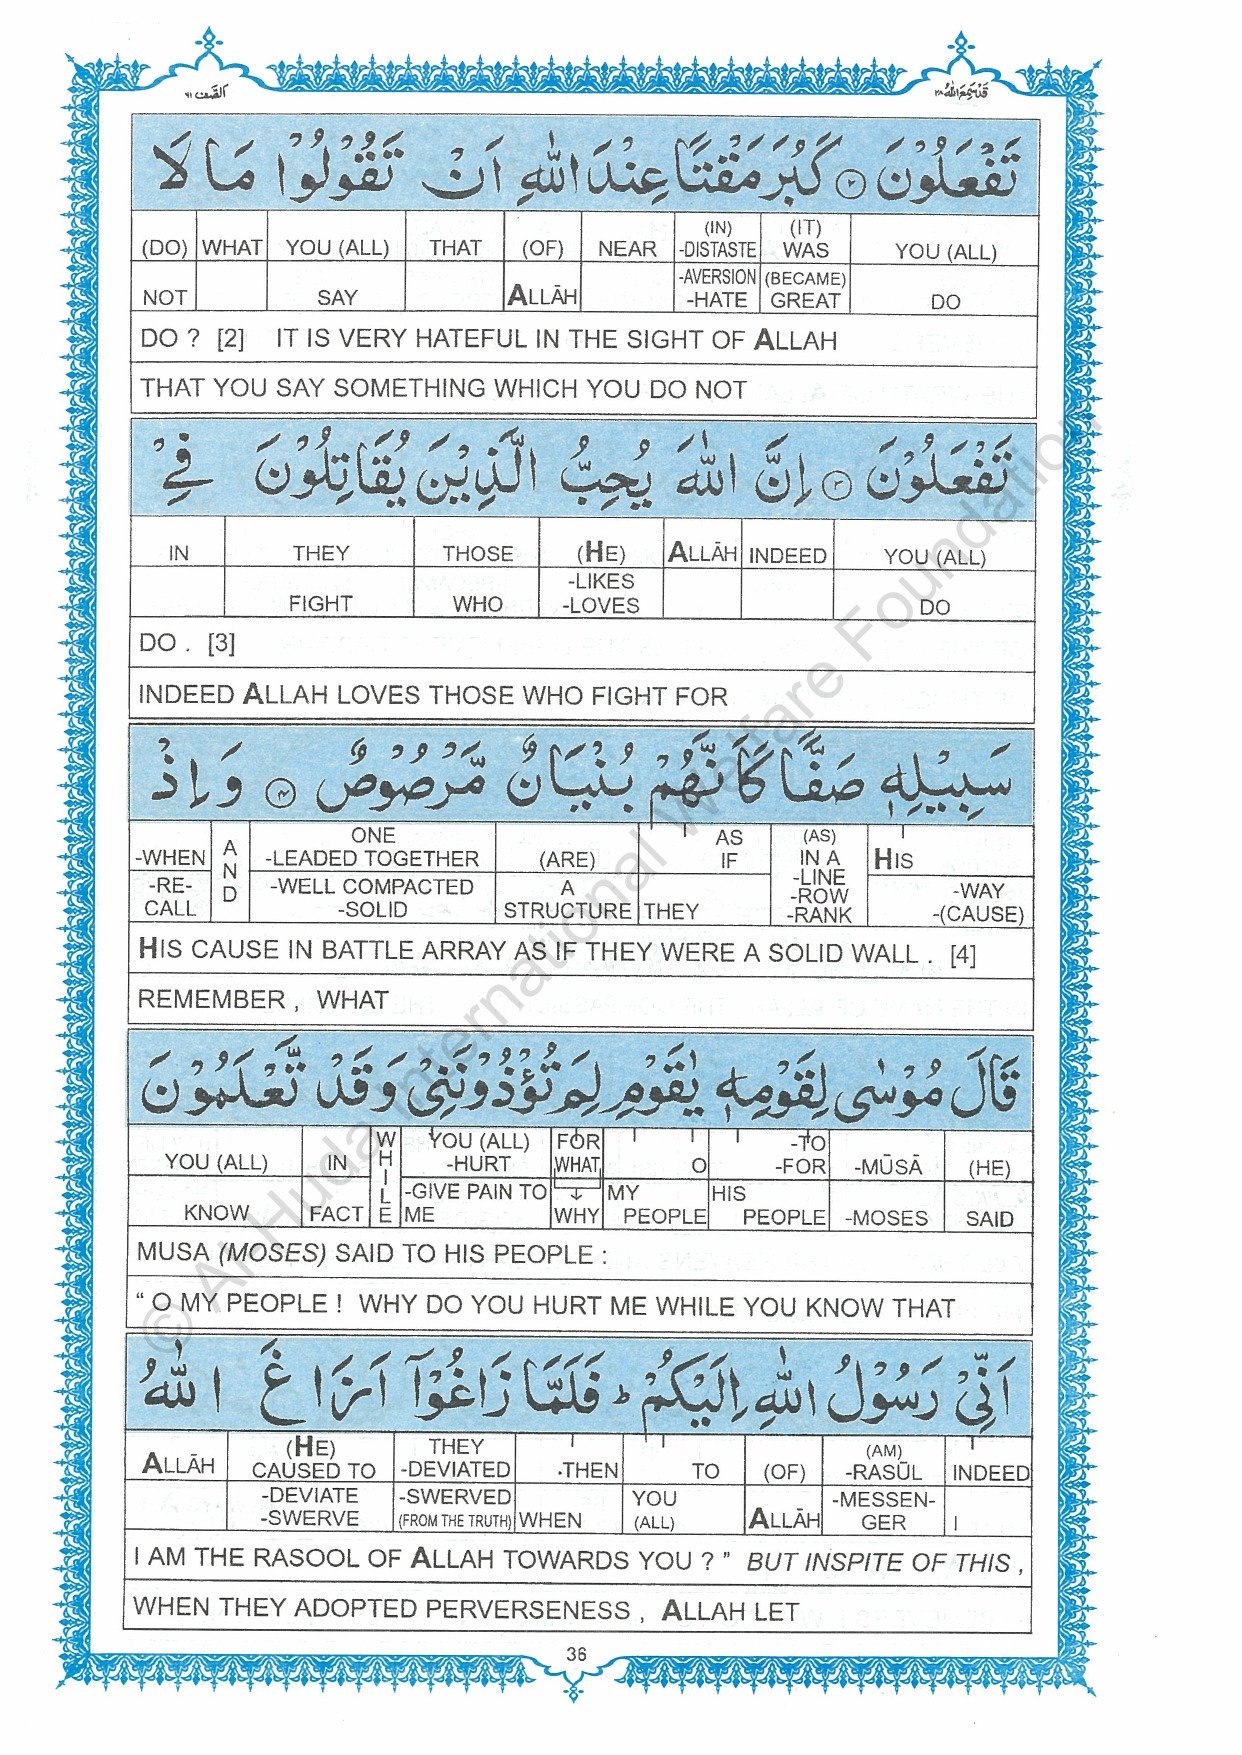 الصّف ٦١
قد سمع الله ٢٨
تَفْعَلُوْنَ ﴿٢﴾ كَبُرَ مَقْتًا عِنْدَ اللّٰهِ اَنْ تَقُوْلُوْا مَا لَا
(DO) WHAT YOU (ALL) THAT (OF) NEAR (IN) -DISTASTE (IT) WAS YOU (ALL)
NOT SAY ALLĀH -AVERSION -HATE (BECAME) GREAT DO
DO ? [2] IT IS VERY HATEFUL IN THE SIGHT OF ALLAH
THAT YOU SAY SOMETHING WHICH YOU DO NOT
تَفْعَلُوْنَ ﴿٣﴾ اِنَّ اللّٰهَ يُحِبُّ الَّذِيْنَ يُقَاتِلُوْنَ فِيْ
IN THEY THOSE (HE) ALLĀH INDEED YOU (ALL)
FIGHT WHO -LIKES -LOVES DO
DO . [3]
INDEED ALLAH LOVES THOSE WHO FIGHT FOR
سَبِيْلِهٖ صَفًّا كَاَنَّهُمْ بُنْيَانٌ مَّرْصُوْصٌ ﴿٤﴾ وَاِذْ
-WHEN AND ONE -LEADED TOGETHER (ARE) AS IF (AS) IN A -LINE HIS
-RE-CALL -WELL COMPACTED -SOLID A STRUCTURE THEY -ROW -RANK -WAY -(CAUSE)
HIS CAUSE IN BATTLE ARRAY AS IF THEY WERE A SOLID WALL . [4]
REMEMBER , WHAT
قَالَ مُوْسٰى لِقَوْمِهٖ يٰقَوْمِ لِمَ تُؤْذُوْنَنِيْ وَقَدْ تَّعْلَمُوْنَ
YOU (ALL) IN WHILE YOU (ALL) -HURT FOR WHAT O -TO -FOR -MŪSĀ (HE)
KNOW FACT -GIVE PAIN TO ME ↓ WHY MY PEOPLE HIS PEOPLE -MOSES SAID
MUSA (MOSES) SAID TO HIS PEOPLE :
“ O MY PEOPLE ! WHY DO YOU HURT ME WHILE YOU KNOW THAT
اَنِّيْ رَسُوْلُ اللّٰهِ اِلَيْكُمْ ؕ فَلَمَّا زَاغُوْۤا اَزَاغَ اللّٰهُ
ALLĀH (HE) CAUSED TO THEY -DEVIATED .THEN TO (OF) (AM) -RASŪL INDEED
-DEVIATE -SWERVE -SWERVED (FROM THE TRUTH) WHEN YOU (ALL) ALLĀH -MESSEN-GER I
I AM THE RASOOL OF ALLAH TOWARDS YOU ? ” BUT INSPITE OF THIS ,
WHEN THEY ADOPTED PERVERSENESS , ALLAH LET
36
© Al-Huda International Welfare Foundation